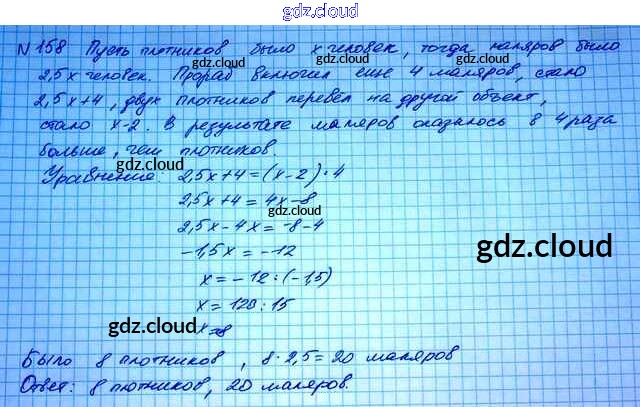 gdz.cloud
N 158 Пусть плотников было x человек, тогда маляров было
2,5x человек. Прораб включил еще 4 маляров, стало
gdz.cloud
gdz.cloud
2,5x+4, двух плотников перевёл на другой объект,
gdz.cloud
стало x-2. В результате маляров оказалось в 4 раза
больше, чем плотников
gdz.cloud
Уравнение: 2,5x+4=(x-2)·4
2,5x+4=4x-8
gdz.cloud
2,5x-4x=-8-4
gdz.cloud
-1,5x=-12
x=-12:(-1,5)
x=120:15
gdz.cloud
x=8
Было 8 плотников, 8·2,5=20 маляров
Ответ: 8 плотников, 20 маляров.
gdz.cloud